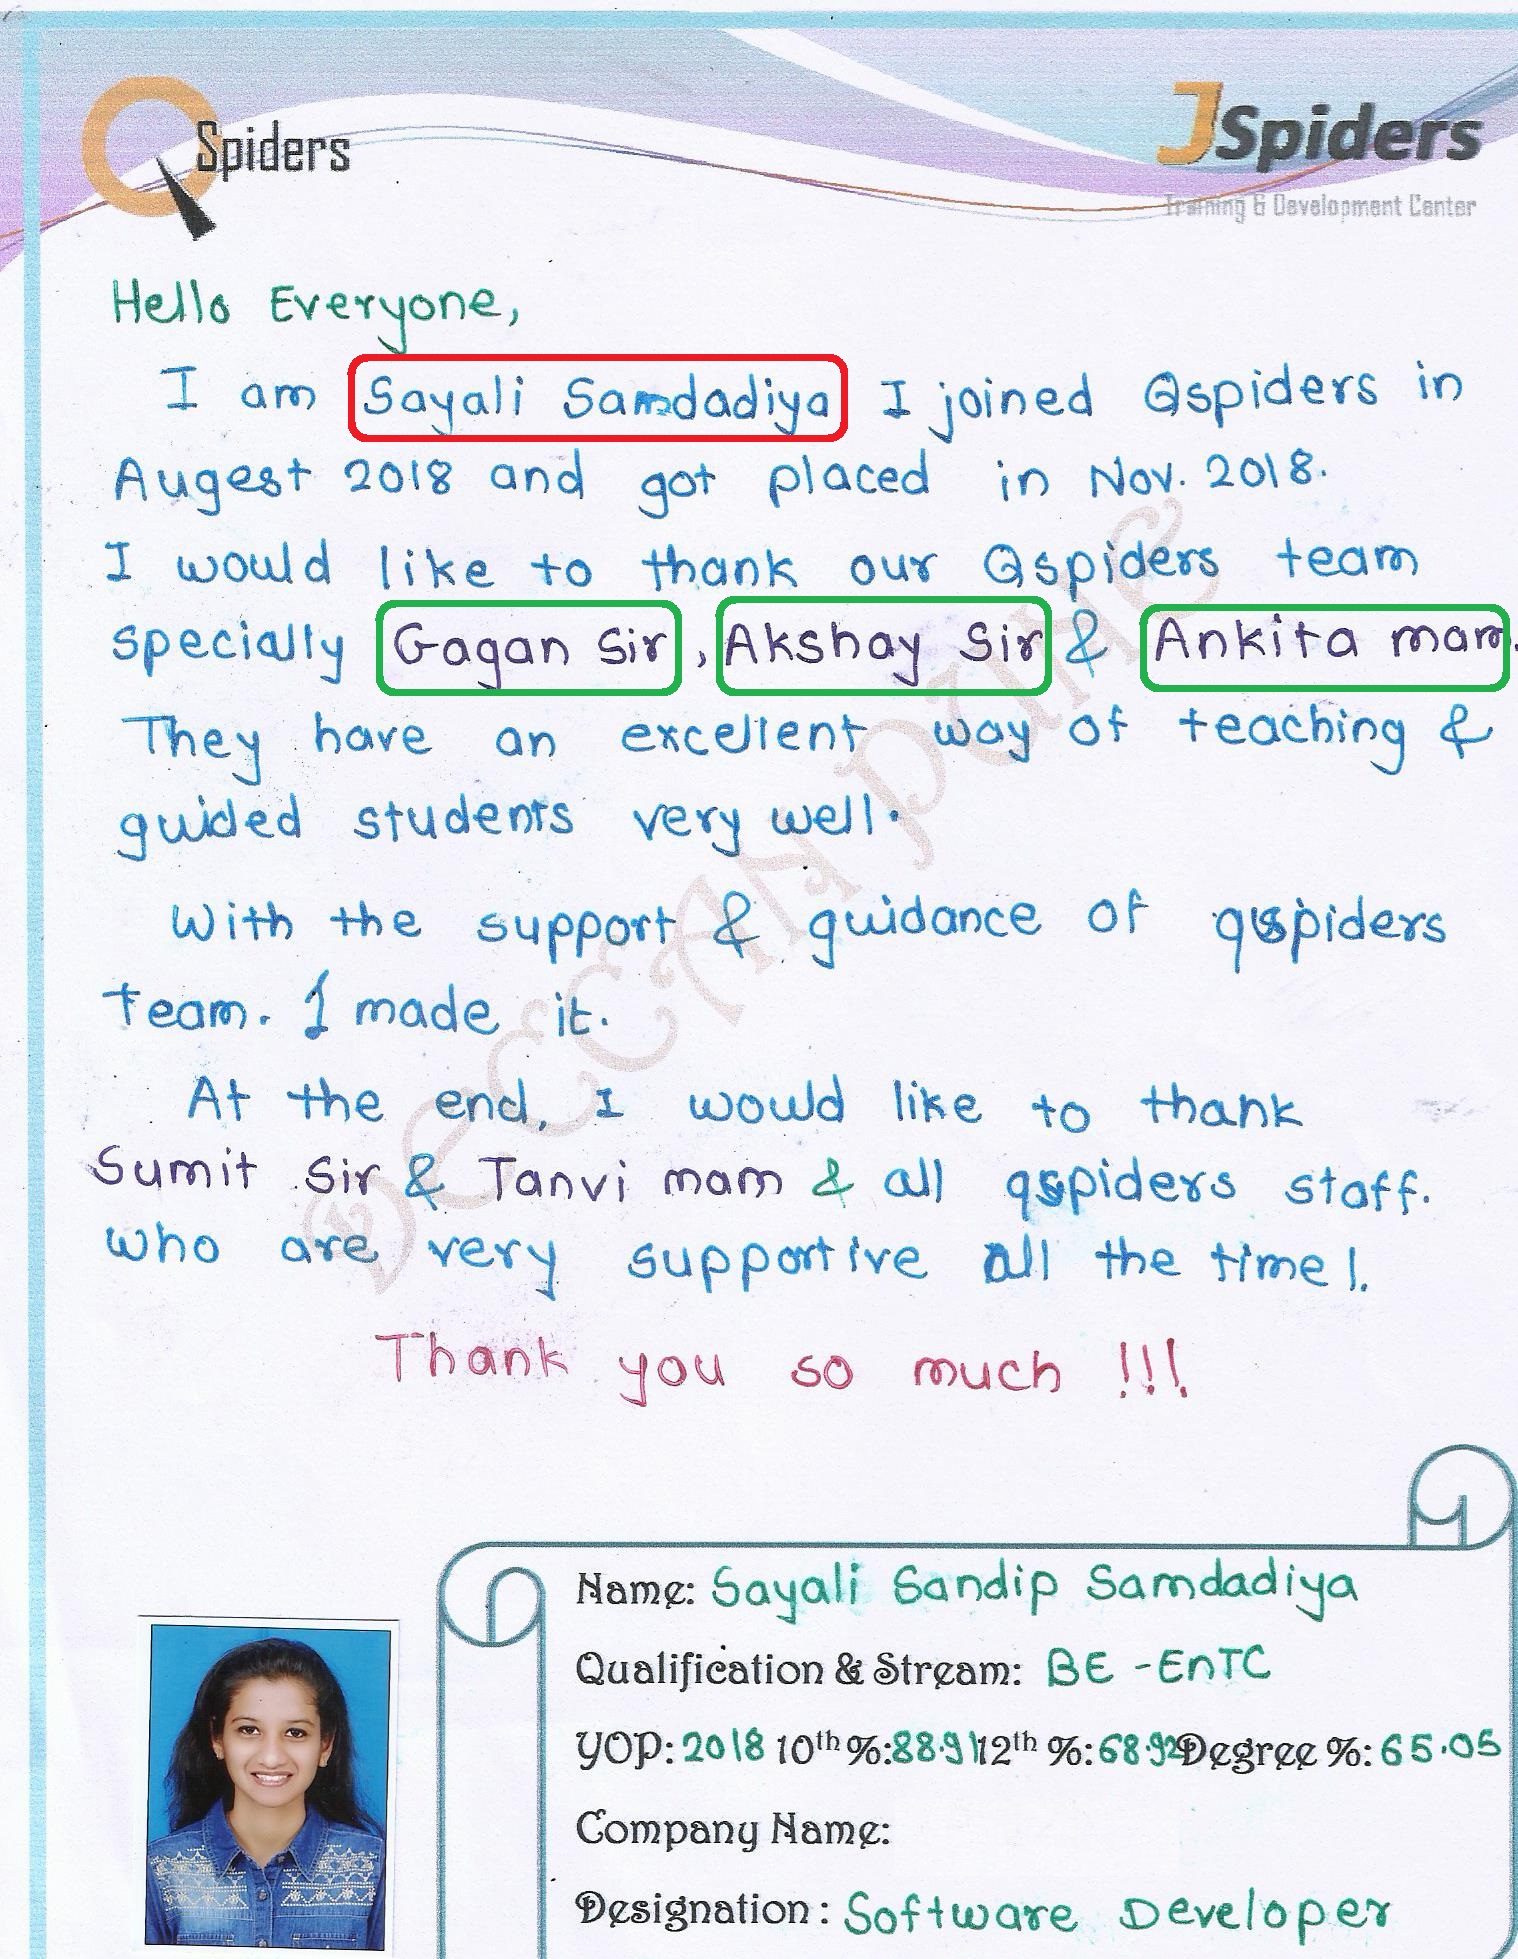 Spiders
JSpiders
Training & Development Center
Hello Everyone,
I am Sayali Samdadiya I joined Qspiders in
Augest 2018 and got placed in Nov. 2018.
I would like to thank our Qspiders team
specially Gagan Sir, Akshay Sir & Ankita mam.
They have an excellent way of teaching &
guided students very well.
With the support & guidance of qspiders
team. I made it.
At the end, I would like to thank
Sumit Sir & Tanvi mam & all qspiders staff.
who are very supportive all the time!.
Thank you so much !!!
DECCAN PUNE
Name: Sayali Sandip Samdadiya
Qualification & Stream: BE - EnTC
YOP: 2018 10th %: 88.91 12th %: 68.92 Degree %: 65.05
Company Name:
Designation : Software Developer